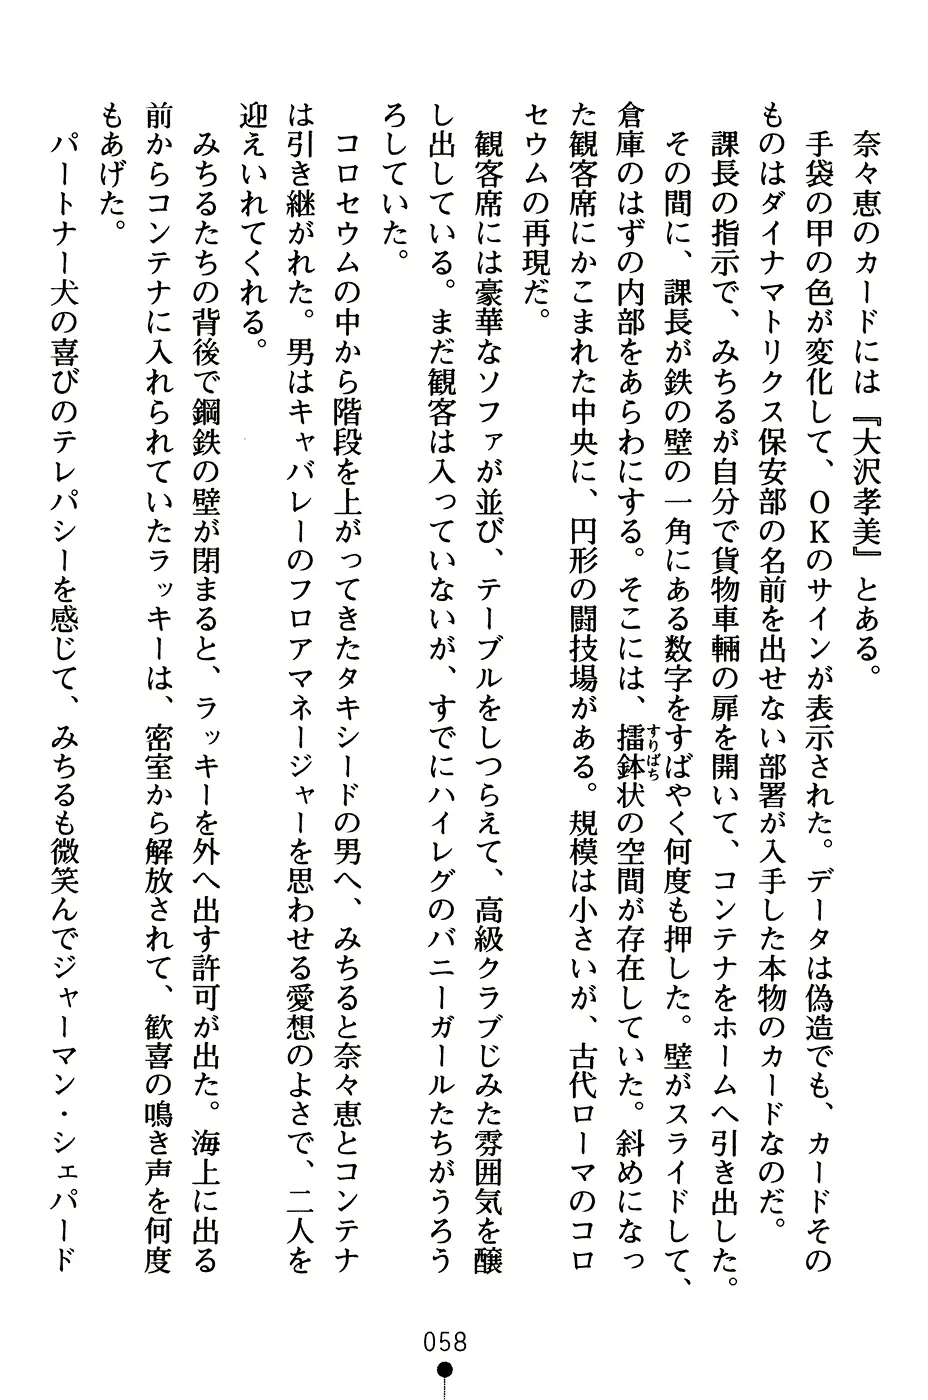 奈々恵のカードには『大沢孝美』とある。
手袋の甲の色が変化して、OKのサインが表示された。データは偽造でも、カードその
ものはダイナマトリクス保安部の名前を出せない部署が入手した本物のカードなのだ。
課長の指示で、みちるが自分で貨物車輛の扉を開いて、コンテナをホームへ引き出した。
その間に、課長が鉄の壁の一角にある数字をすばやく何度も押した。壁がスライドして、
倉庫のはずの内部をあらわにする。そこには、擂鉢状の空間が存在していた。斜めになっ
すりばち
た観客席にかこまれた中央に、円形の闘技場がある。規模は小さいが、古代ローマのコロ
セウムの再現だ。
観客席には豪華なソファが並び、テーブルをしつらえて、高級クラブじみた雰囲気を醸
し出している。まだ観客は入っていないが、すでにハイレグのバニーガールたちがうろう
ろしていた。
コロセウムの中から階段を上がってきたタキシードの男へ、みちると奈々恵とコンテナ
は引き継がれた。男はキャバレーのフロアマネージャーを思わせる愛想のよさで、二人を
迎えいれてくれる。
みちるたちの背後で鋼鉄の壁が閉まると、ラッキーを外へ出す許可が出た。海上に出る
前からコンテナに入れられていたラッキーは、密室から解放されて、歓喜の鳴き声を何度
もあげた。
パートナー犬の喜びのテレパシーを感じて、みちるも微笑んでジャーマン・シェパード
058